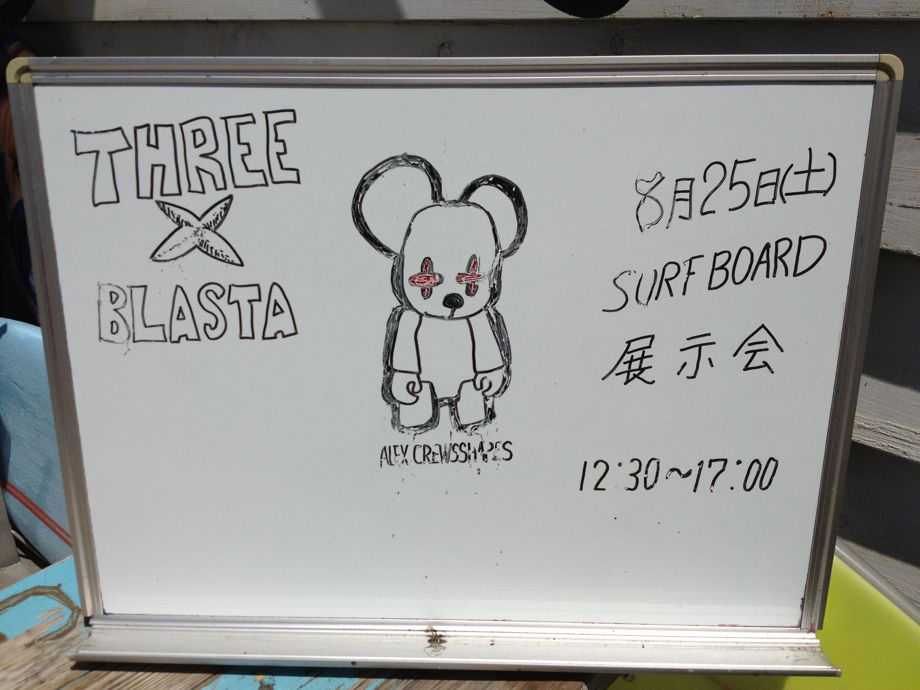 THREE
×
BLASTA
ALEX CREWSSHAPES
8月25日(土)
SURF BOARD
展示会
12:30~17:00